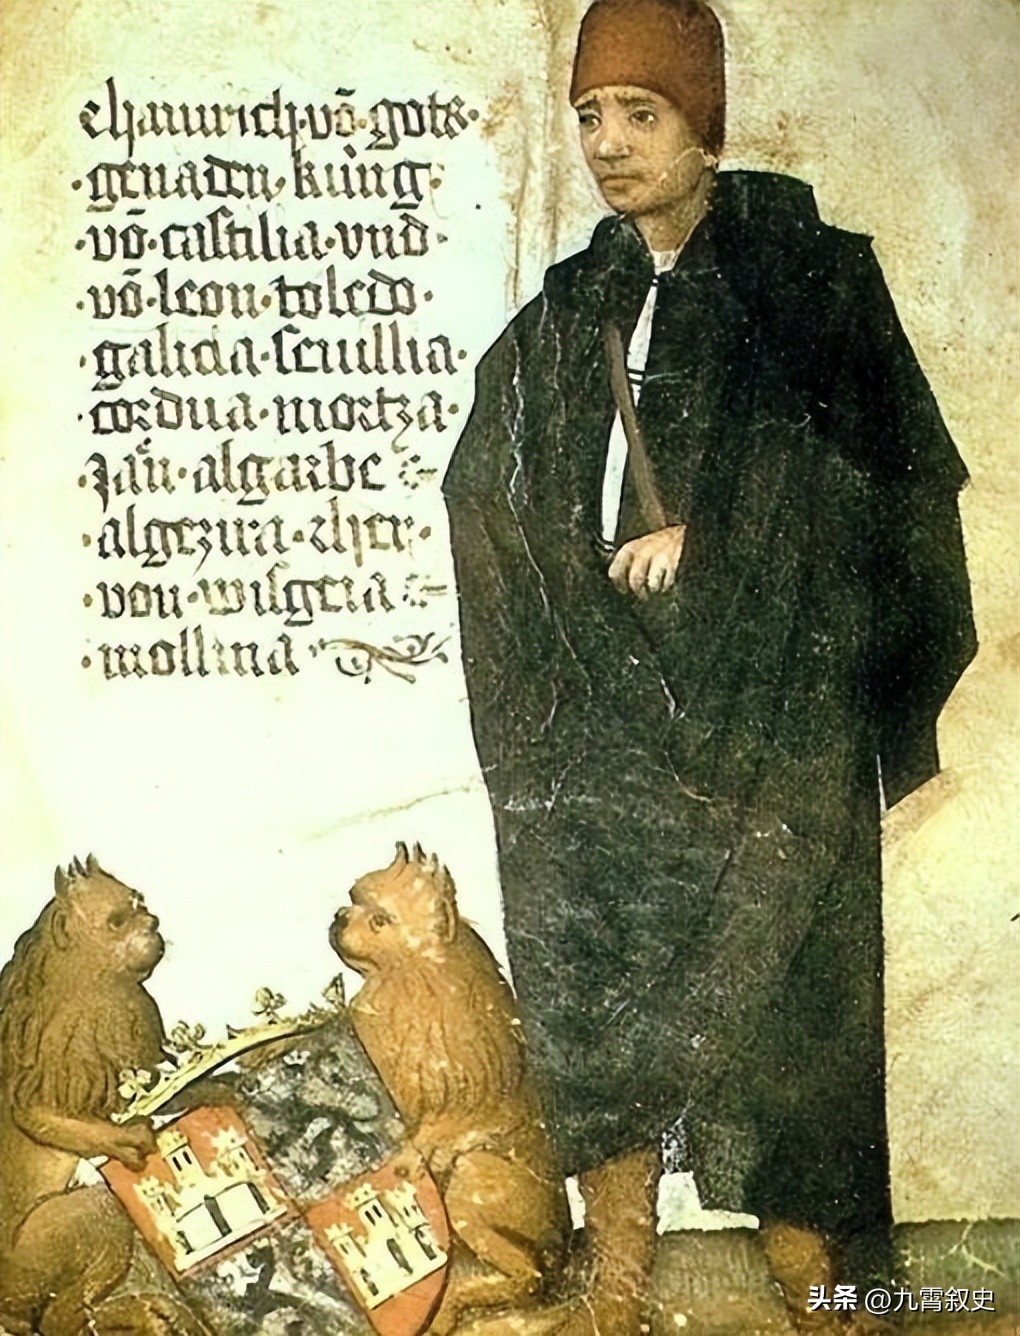 ·hainrich·vō·gots·
·genaden·küng·
·vō·castilia·vnd·
·vō·leon·toledo·
·galicia·seuillia·
·cordua·mortza·
·algarbe
·algezira·
·von·wisgeia
·mollina·
头条 @九霄叙史